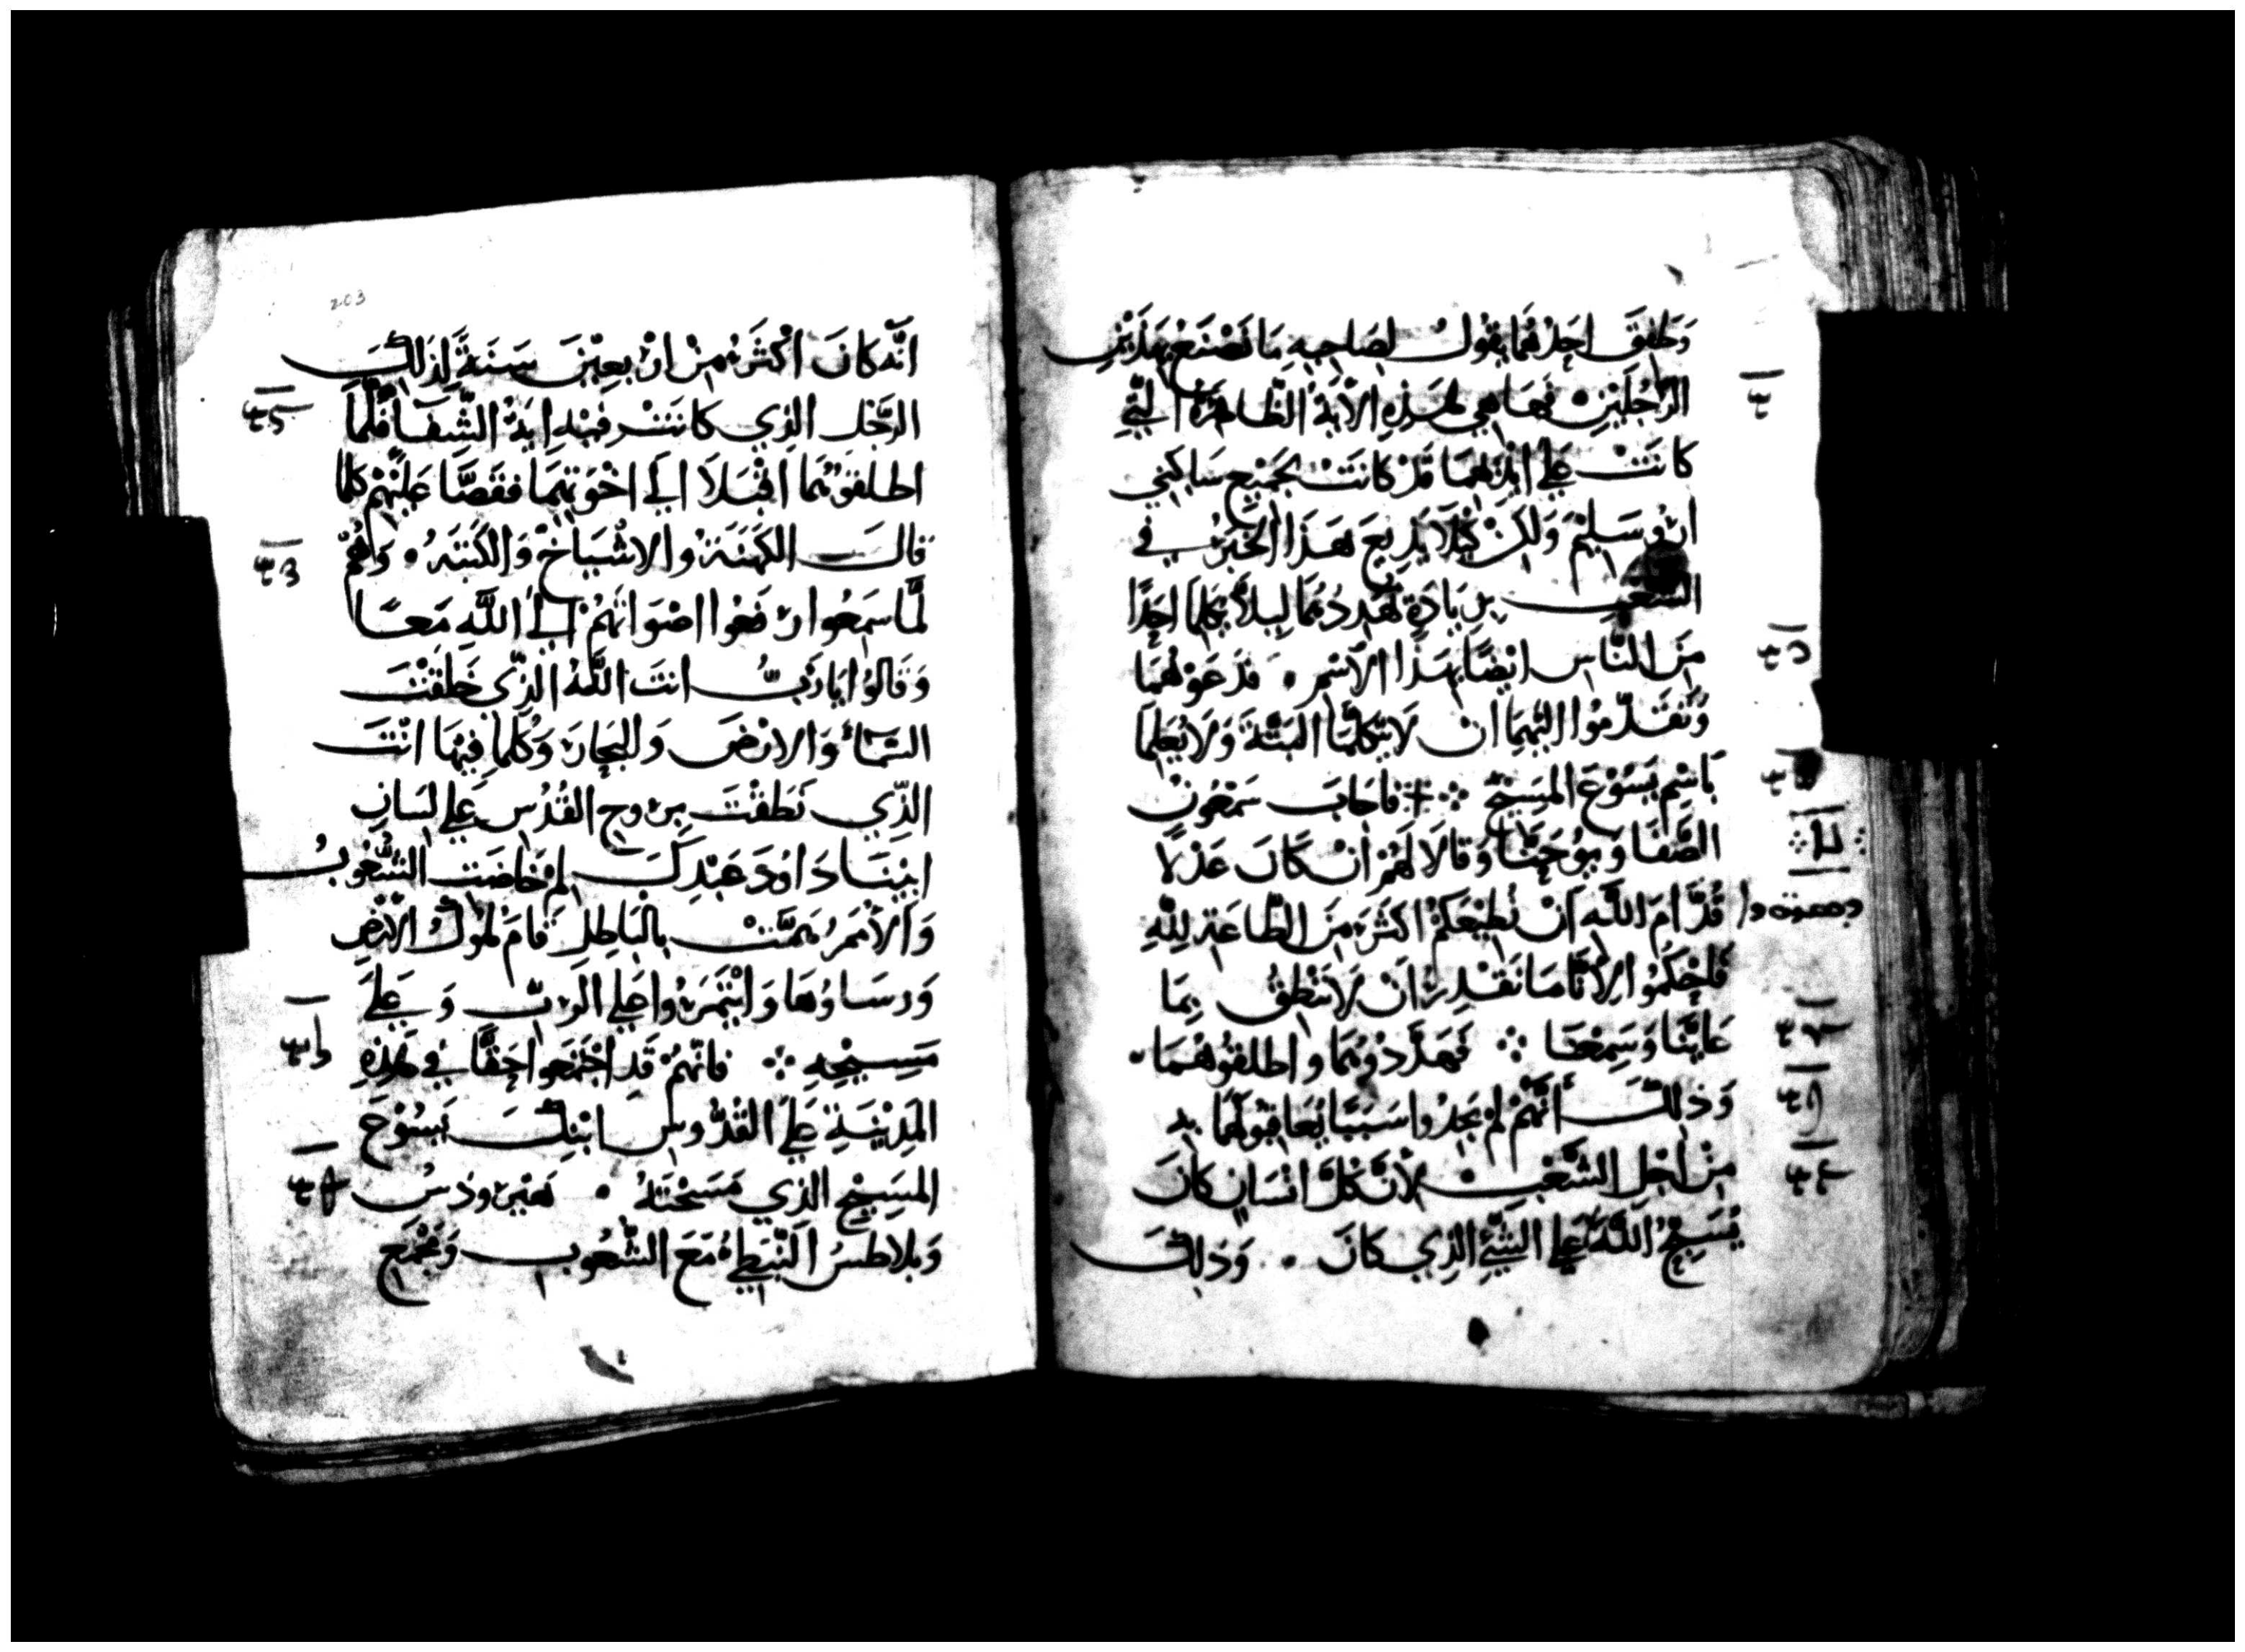 وَطَفِقَ احَدُهُمَا يَقُولُ لِصَاحِبِهِ مَا نَصْنَعُ بِهَذَيْنِ
الرَّجُلَيْنِ فَهَا هِي هَذِهِ الاَيَةُ الظَّاهِرَةُ الَّتِي
كَانَتْ عَلَى ايْدِيْهِمَا قَدْ كَانَتْ لِجَمِيْعِ سَاكِنِي
ارُوسَلِيْمَ وَلَكِنْ كَيْلَا يَذِيعَ هَذَا الخَبَرُ فِي
الشعْبِ بِزِيَادَةٍ نُهَدِدُهُمَا لِيلاَّ يُكَلِمَا احَدًا
مِنَ النَّاسِ ايْضًا بِهَذَا الاِسْمِ . فَدَعَوْهُمَا
وَتَقَدَّمُوا اليْهِمَا انْ لَا يَتَكَلَّمَا البَتَّةَ وَلَا يُعَلِمَا
بَاسْمِ يَسُوْعَ المَسِيْحِ ܀ فَاجَابَ سَمْعُونُ
الصَّفَا وَيُوحَنَّا وَقَالَا لَهُمْ انْ كَانَ عَدْلًا
قُدَّامَ اللَّهِ انْ نُطِيْعَكُمْ اكثَرَ مِنَ الطَّاعَةِ لِلَّهِ
فَاحْكُمُوا لِانَّا مَا نَقْدِرُ انْ لَا نَنْطِقُ بِمَا
عَايَنَّا وَسَمِعْنَا ܀ فَهَدَّدُوْهُمَا وَاطلَقُوْهُمَا
وَذلِكَ أَنَّهُمْ لَمْ يَجِدُوا سَبَبًا يُعَاقِبُوْهُمَا بِهِ
مِنْ اجْلِ الشَّعْبِ لاَنَّ كُلَّ انْسَانٍ كَانَ
يُسَبِحُ اللَّهَ عَلَى الشَّيْءِ الَّذِي كَانَ . وَذَلِكَ
203
انَّهُ كَانَ اكْثَرَ مِنْ ارْبَعِيْنَ سَنَةً لِذَلِكَ
الرَّجُلِ الَّذِي كَانَتْ فِيْهِ ايَةُ الشِّفَا فَلَمَّا
اطلَقُوْهُمَا اقْبَلَا الَى اخْوَتِهِمَا فَقَصَّا عَلَيْهِمْ كُلَّمَا
قَالَ الكَهَنَةُ وَالاشْيَاخُ وَالكَتَبَةُ . وَهُمْ
لَمَّا سَمِعُوا رَفَعُوا اصْوَاتَهُمْ الَى اللَّهِ مَعًا
وَقَالُوا يَا رَبُّ انتَ اللَّهُ الَّذِي خَلَقْتَ
السَّمَاءَ وَالارْضَ وَالبِحَارَ وَكُلَّمَا فِيْهَا انْتَ
الَّذِي نَطَقْتَ بِرُوحِ القُدُسِ عَلَى لِسَانِ
ابِيْنَا دَاوُدَ عَبْدِكَ لِمَ خَاضَتِ الشُّعُوْبُ
وَالاُمَمُ هَمَّتْ بِالبَاطِلِ قَامَ مُلُوكُ الارْضِ
وَرسَاوُهَا وَايْتَمَرُوا عَلَى الرَبِّ وَعَلَى
مَسِيْحِهِ ܀ فَانَّهُمْ قَد اجْتَمَعُوا حَقًّا فِي هَذِهِ
المَدِيْنَةِ عَلَى القُدُّوسِ ابْنِكَ يَسُوْعَ
المَسِيْحِ الَّذِي مَسَحْتَهُ . هَيْرُودُسُ
وَبِلَاطسُ النَّبَطِيُّ مَعَ الشُّعُوبِ وَمَجْمَعِ